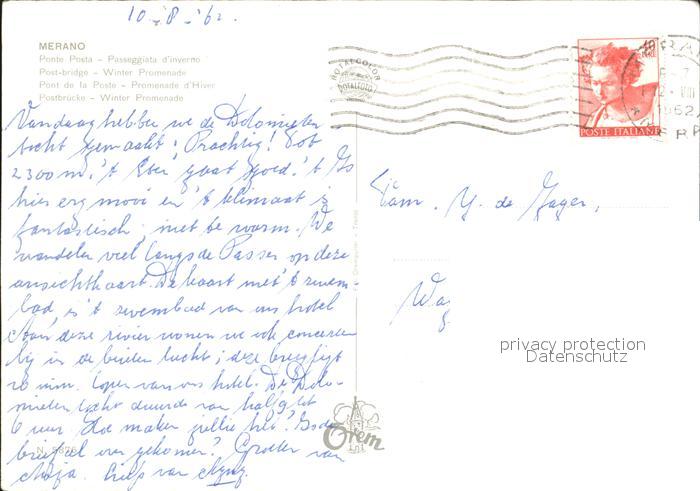 10-8-'62
MERANO
Ponte Posta - Passeggiata d'inverno
Post-bridge - Winter Promenade
Pont de la Poste - Promenade d'Hiver
Postbrücke - Winter Promenade
Vandaag hebben we de Dolomieten
tocht gemaakt! Prachtig! Tot
2300 m! 't Eten gaat goed! 't Is
hier erg mooi en 't klimaat is
fantastisch; niet te warm. We
wandelen veel langs de Passer op deze
ansichtkaart. De kaart met 't zwem-
bad, is 't zwembad van ons hotel
Aan deze rivier wonen we ook concerten
bij in de buiten lucht; deze brug ligt
10 min. lopen van ons hotel. De Dolo-
mieten tocht duurde van half 8 tot
6 uur. Hoe maken jullie het? Is de
over gekomen? Groeten van
liefs van
Fam. Y. de Jager,
ROTALCOLOR
ROTALFOTO
40
LIRE
POSTE ITALIANE
1962
privacy protection
Datenschutz
Orem